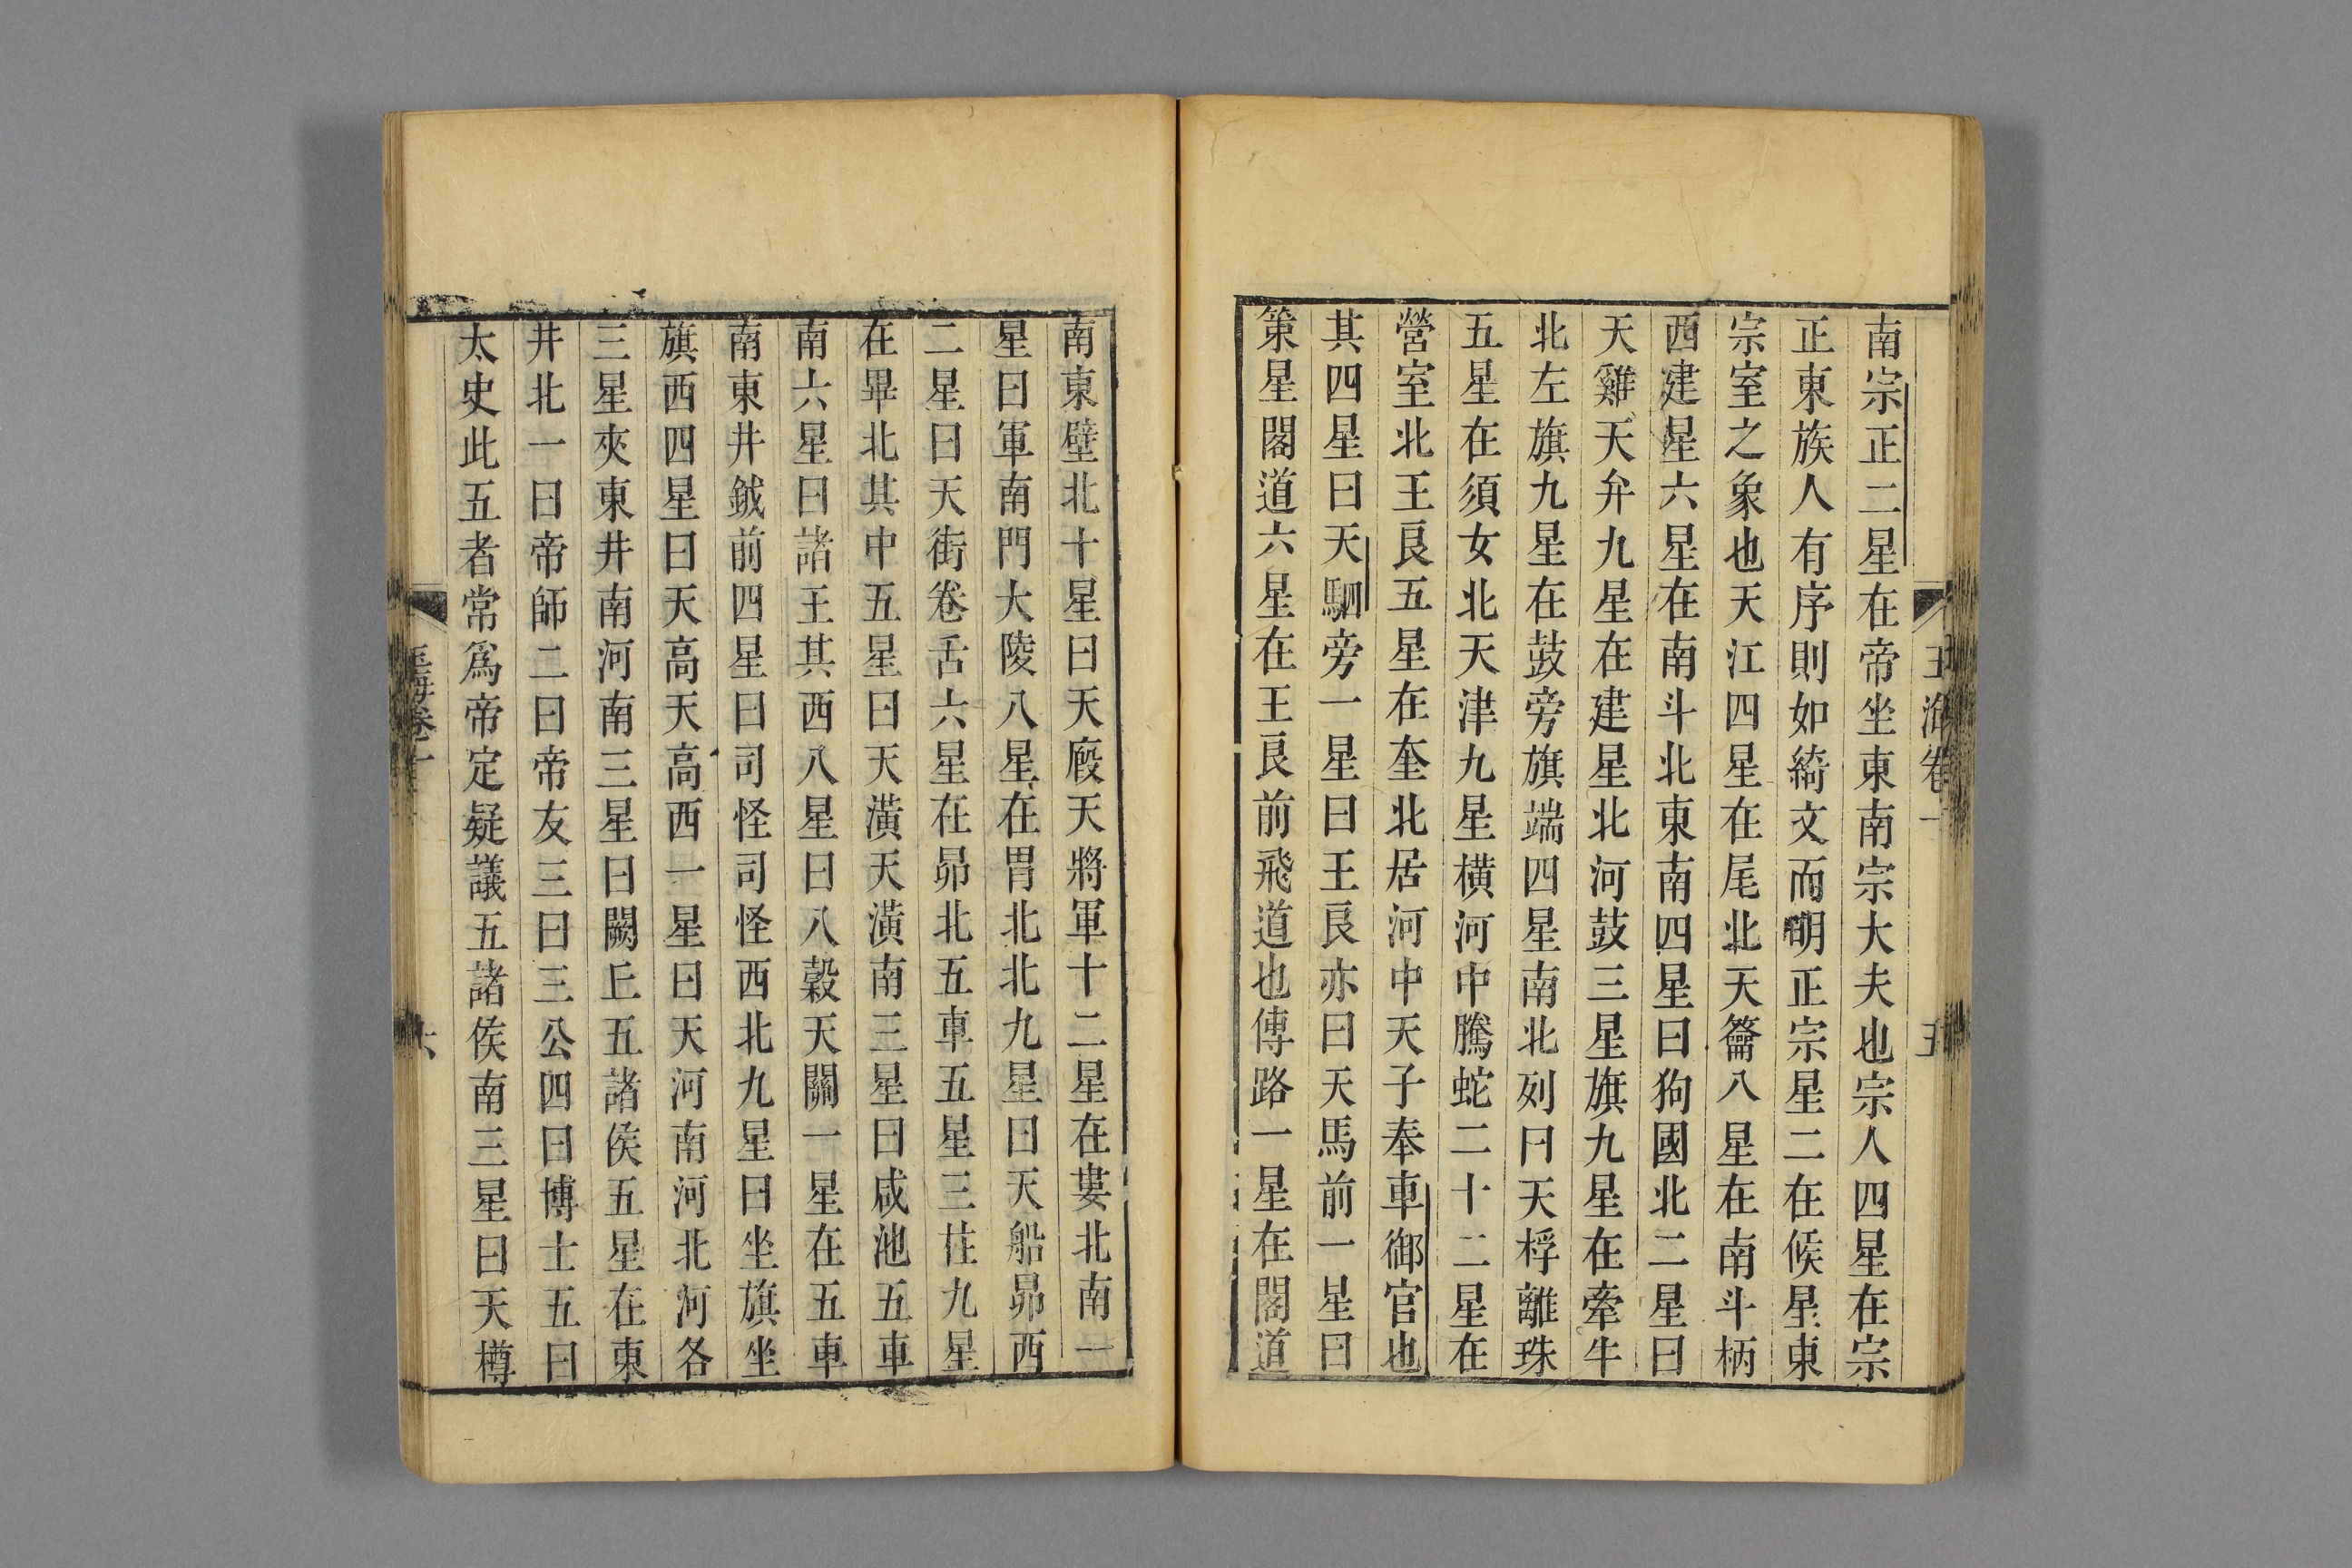 玉海卷一 五
南宗正二星在帝坐東南宗大夫也宗人四星在宗
正東族人有序則如綺文而明正宗星二在候星東
宗室之象也天江四星在尾北天籥八星在南斗柄
西建星六星在南斗北東南四星曰狗國北二星曰
天雞天弁九星在建星北河鼓三星旗九星在牽牛
北左旗九星在鼓旁旗端四星南北列曰天桴離珠
五星在須女北天津九星橫河中騰蛇二十二星在
營室北王良五星在奎北居河中天子奉車御官也
其四星曰天駟旁一星曰王良亦曰天馬前一星曰
策星閣道六星在王良前飛道也傳路一星在閣道
南東壁北十星曰天廄天將軍十二星在婁北南一
星曰軍南門大陵八星在胃北北九星曰天船昴西
二星曰天街卷舌六星在昴北五車五星三柱九星
在畢北其中五星曰天潢天潢南三星曰咸池五車
南六星曰諸王其西八星曰八穀天關一星在五車
南東井鉞前四星曰司怪司怪西北九星曰坐旗坐
旗西四星曰天高天高西一星曰天河南河北河各
三星夾東井南河南三星曰闕丘五諸侯五星在東
井北一曰帝師二曰帝友三曰三公四曰博士五曰
太史此五者常爲帝定疑議五諸侯南三星曰天樽
玉海卷一 六